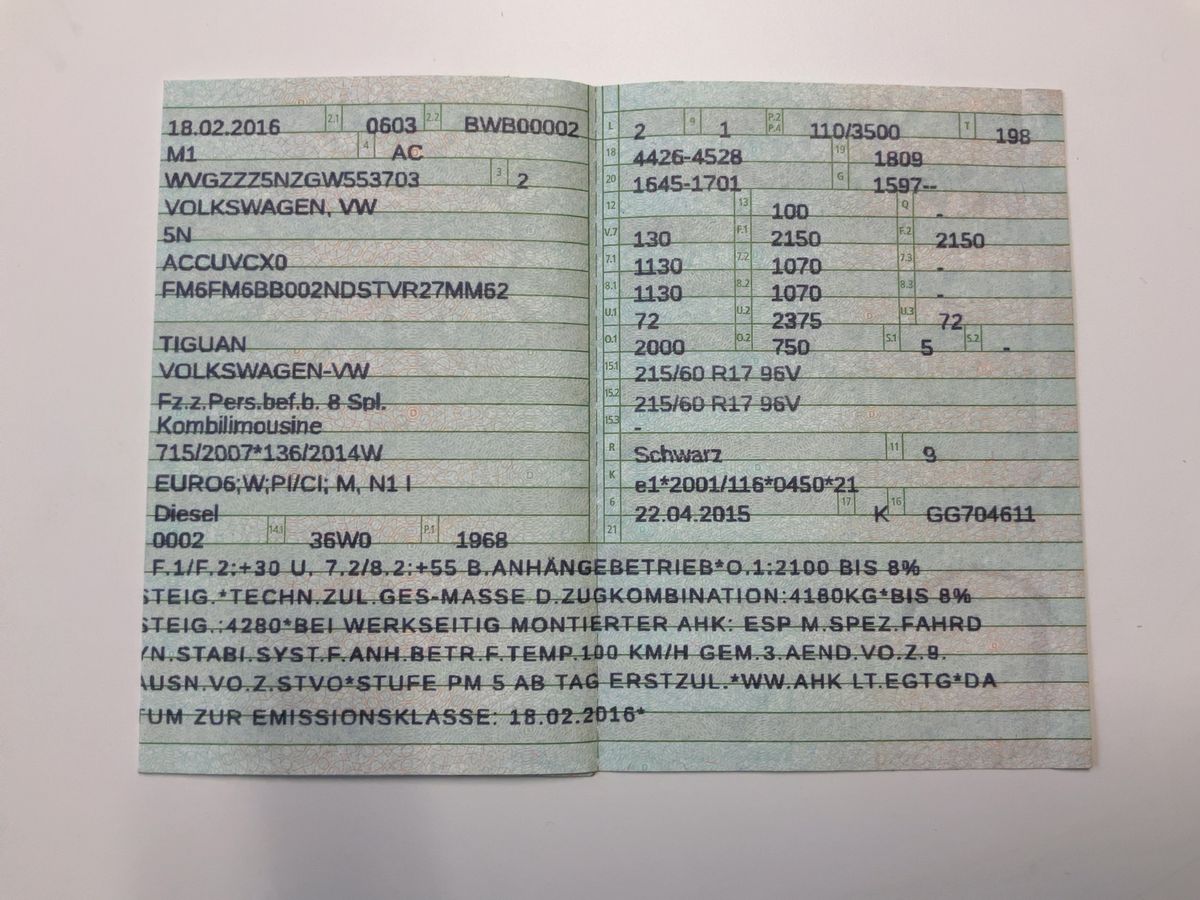 18.02.2016 2.1 0603 2.2 BWB00002
M1 4 AC
WVGZZZ5NZGW553703 3 2
VOLKSWAGEN, VW
5N
ACCUVCX0
FM6FM6BB002NDSTVR27MM62
TIGUAN
VOLKSWAGEN-VW
Fz.z.Pers.bef.b. 8 Spl.
Kombilimousine
715/2007*136/2014W
EURO6;W;PI/CI; M, N1 I
Diesel
0002 14.1 36W0 P.1 1968
L 2 9 1 P.2 P.4 110/3500 T 198
18 4426-4528 19 1809
20 1645-1701 G 1597--
12 13 100 Q -
V.7 130 F.1 2150 F.2 2150
7.1 1130 7.2 1070 7.3 -
8.1 1130 8.2 1070 8.3 -
U.1 72 U.2 2375 U.3 72
O.1 2000 O.2 750 S.1 5 S.2 -
15.1 215/60 R17 96V
15.2 215/60 R17 96V
15.3 -
R Schwarz 11 9
K e1*2001/116*0450*21
6 22.04.2015 17 K 16 GG704611
21
F.1/F.2:+30 U. 7.2/8.2:+55 B.ANHÄNGEBETRIEB*O.1:2100 BIS 8%
STEIG.*TECHN.ZUL.GES-MASSE D.ZUGKOMBINATION:4180KG*BIS 8%
STEIG.:4280*BEI WERKSEITIG MONTIERTER AHK: ESP M.SPEZ.FAHRD
YN.STABI.SYST.F.ANH.BETR.F.TEMP.100 KM/H GEM.3.AEND.VO.Z.9.
AUSN.VO.Z.STVO*STUFE PM 5 AB TAG ERSTZUL.*WW.AHK LT.EGTG*DA
TUM ZUR EMISSIONSKLASSE: 18.02.2016*